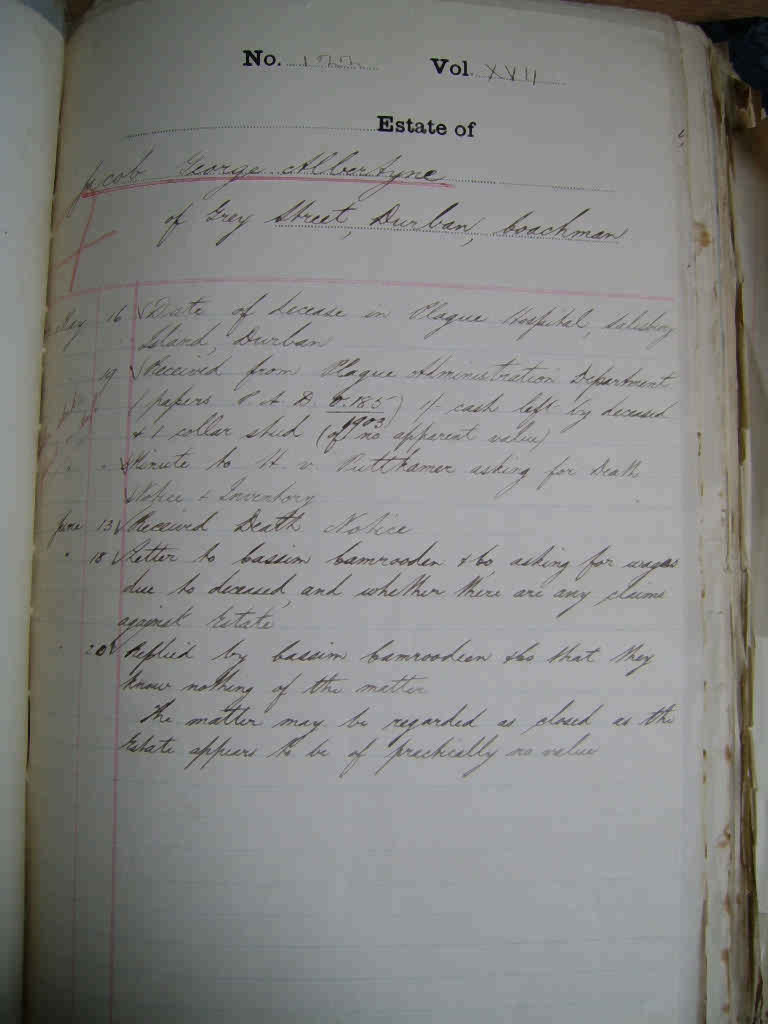 No. 122 Vol. XVII
Estate of
Jacob George Albertyne
of Grey Street, Durban, Coachman
May 16 Date of decease in Plague Hospital, Salisbury
Island, Durban
19 Received from Plague Administration Department
papers P. A. D. P.185/1903) 1/- cash left by deceased
& 1 collar stud (of no apparent value)
" Minute to H. v. Puttkamer asking for Death
Notice & Inventory
June 13 Received Death Notice
" 18 Letter to Cassim Camrooden & Co asking for wages
due to deceased, and whether there are any claims
against Estate
" 20 Replied by Cassim Camroodeen & Co that they
know nothing of the matter
The matter may be regarded as closed as the
Estate appears to be of practically no value